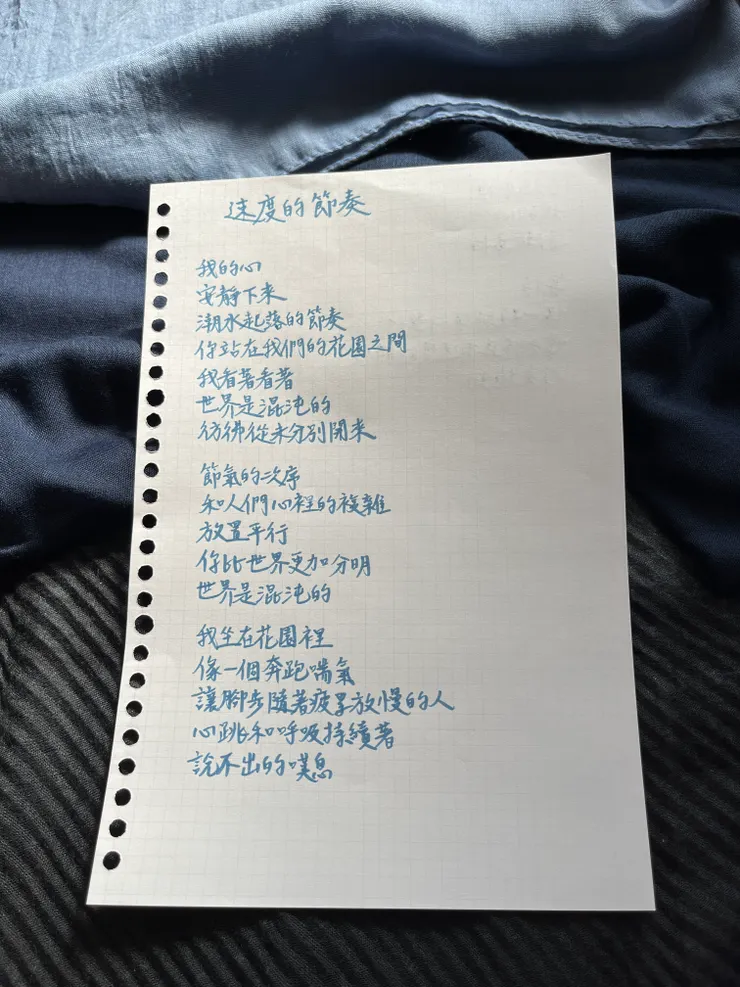 速度的節奏
我的心
安靜下來
潮水起落的節奏
你站在我們的花園之間
我看著看著
世界是混沌的
彷彿從未分別開來
節氣的次序
和人們心裡的複雜
放置平行
你比世界更加分明
世界是混沌的
我坐在花園裡
像一個奔跑喘氣
讓腳步隨著疲累放慢的人
心跳和呼吸持續著
說不出的嘆息